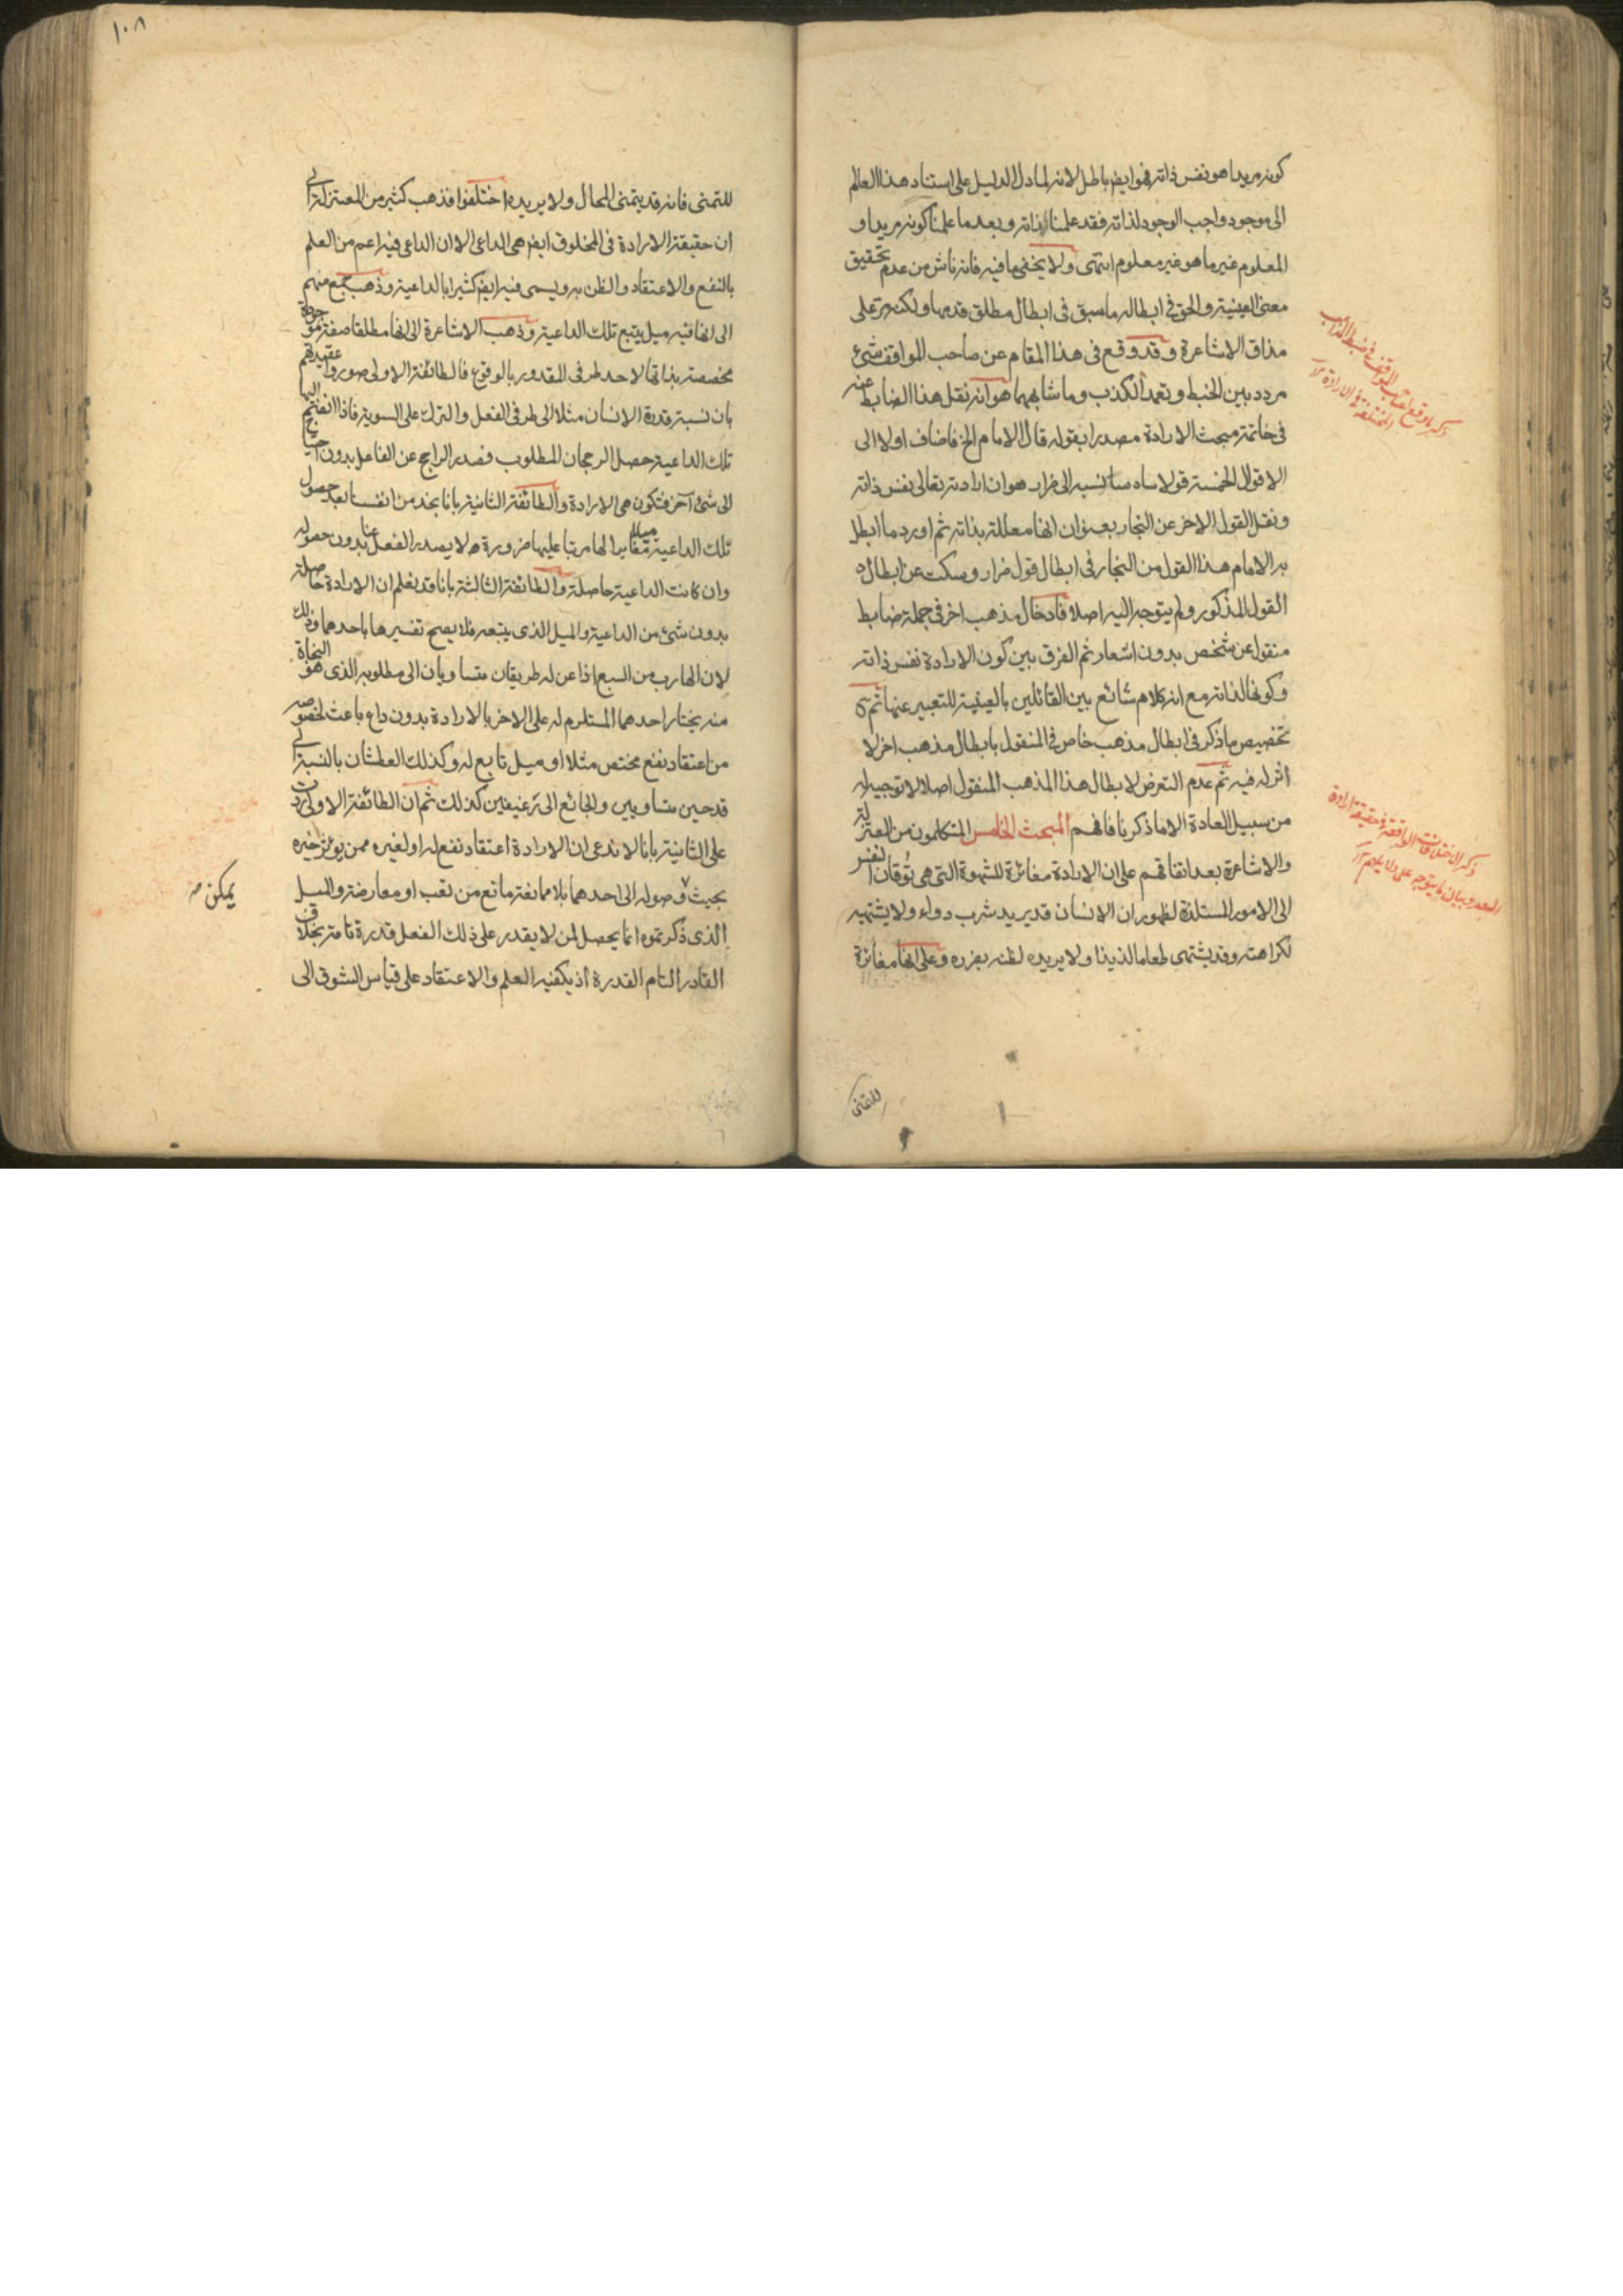 كونه مريدا هو نفس ذاته فهو ايضا باطل لانه لما دل الدليل على استناد هذا العالم
الى موجود واجب الوجود لذاته فقد علمنا ذاته وبعد ما علمنا كونه مريدا و
المعلوم غير ما هو غير معلوم انتهى ولا يخفى ما فيه فانه ناش من عدم تحقيق
معنى العينية والحق فى ابطاله ما سبق فى ابطال مطلق قدمها ولكنه مر على
مذاق الاشاعرة وقد وقع فى هذا المقام عن صاحب المواقف شئ
مردد بين الخبط وتعمد الكذب وما شابههما هو انه نقل هذا الضابط عنه
فى خاتمة مبحث الارادة مصدرا بقوله قال الامام الخ فاضاف اولا الى
الاقوال الخمسة قولا سادسا نسبه الى ضرار هو ان ارادته تعالى نفس ذاته
ونقل القول الاخر عن النجار بعنوان انها معللة بذاته ثم اورد ما ابطل
به الامام هذا القول من النجار فى ابطال قول ضرار وسكت عن ابطال
القول المذكور ولم يتوجه اليه اصلا فادخال مذهب اخر فى جملة ضابط
منقول عن شخص بدون اشعار ثم الفرق بين كون الارادة نفس ذاته
وكونها لذاته مع انه كلام شائع بين القائلين بالعينية للتعبير عنها ثم
تخصيص ما ذكر فى ابطال مذهب خاص فى المنقول بابطال مذهب اخر لا
اثر له فيه ثم عدم التعرض لابطال هذا المذهب المنقول اصلا لا توجيه له
من سبيل العادة الا ما ذكرنا فافهم المبحث الخامس المتكلمون من المعتزلة
والاشاعرة بعد اتفاقهم على ان الارادة مغائرة للشهوة التى هى توقان النفس
الى الامور المستلذة لظهور ان الانسان قد يريد شرب دواء ولا يشتهيه
لكراهته وقد يشتهى طعاما لذيذا ولا يريده لظنه بضرره وعلى انها مغائرة
للتمنى
١٠٨
للتمنى فانه قد يتمنى المحال ولا يريده اختلفوا فذهب كثير من المعتزلة الى
ان حقيقة الارادة فى المخلوق ايضا هى الداعى الا ان الداعى فيه اعم من العلم
بالنفع والاعتقاد والظن به ويسمى فيه ايضا كثيرا بالداعية وذهب جمع منهم
الى انها فيه ميل يتبع تلك الداعية وذهب الاشاعرة الى انها مطلقا صفة موجودة
مخصصة بذاتها لاحد طرفى المقدور بالوقوع فالطائفة الاولى صوروا عقيدتهم
بان نسبة قدرة الانسان مثلا الى طرفى الفعل والترك على السوية فاذا انضم اليها
تلك الداعية حصل الرجحان المطلوب فصدر الراجح عن الفاعل بدون احتياج
الى شئ آخر فتكون هى الارادة والطائفة الثانية بانا نجد من انفسنا بعد حصول
تلك الداعية ميلا مغايرا لها مرتبا عليها ضرورة لا يصدر الفعل عنا بدون حصوله
وان كانت الداعية حاصلة والطائفة الثالثة بانا قد نعلم ان الارادة حاصلة
بدون شئ من الداعية والميل الذى يتبعه فلا يصح تفسيرها باحدهما وذلك
لان الهارب من السبع اذا عن له طريقان متساويان الى مطلوبه الذى هو النجاة
منه يختار احدهما المستلزم له على الاخر بالارادة بدون داع باعث لخصوصه
من اعتقاد نفع مختص مثلا او ميل تابع له وكذلك العطشان بالنسبة الى
قدحين متساويين والجائع الى رغيفين كذلك ثم ان الطائفة الاولى ردت
على الثانية بانا لا ندعى ان الارادة اعتقاد نفع له او لغيره ممن يؤثر خيره
بحيث وصوله الى احدهما بلا ممانعة مانع من تعب او معارضة والميل
الذى ذكرتموه انما يحصل لمن لا يقدر على ذلك الفعل قدرة تامة بخلاف
القادر التام القدرة اذ يكفيه العلم والاعتقاد على قياس الشوق الى
يمكن